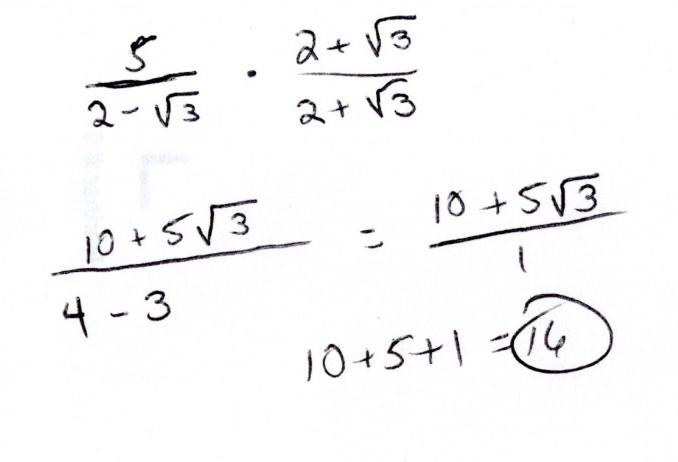 5/(2 - √3) · (2 + √3)/(2 + √3)
(10 + 5√3)/(4 - 3) = (10 + 5√3)/1
10 + 5 + 1 = 16